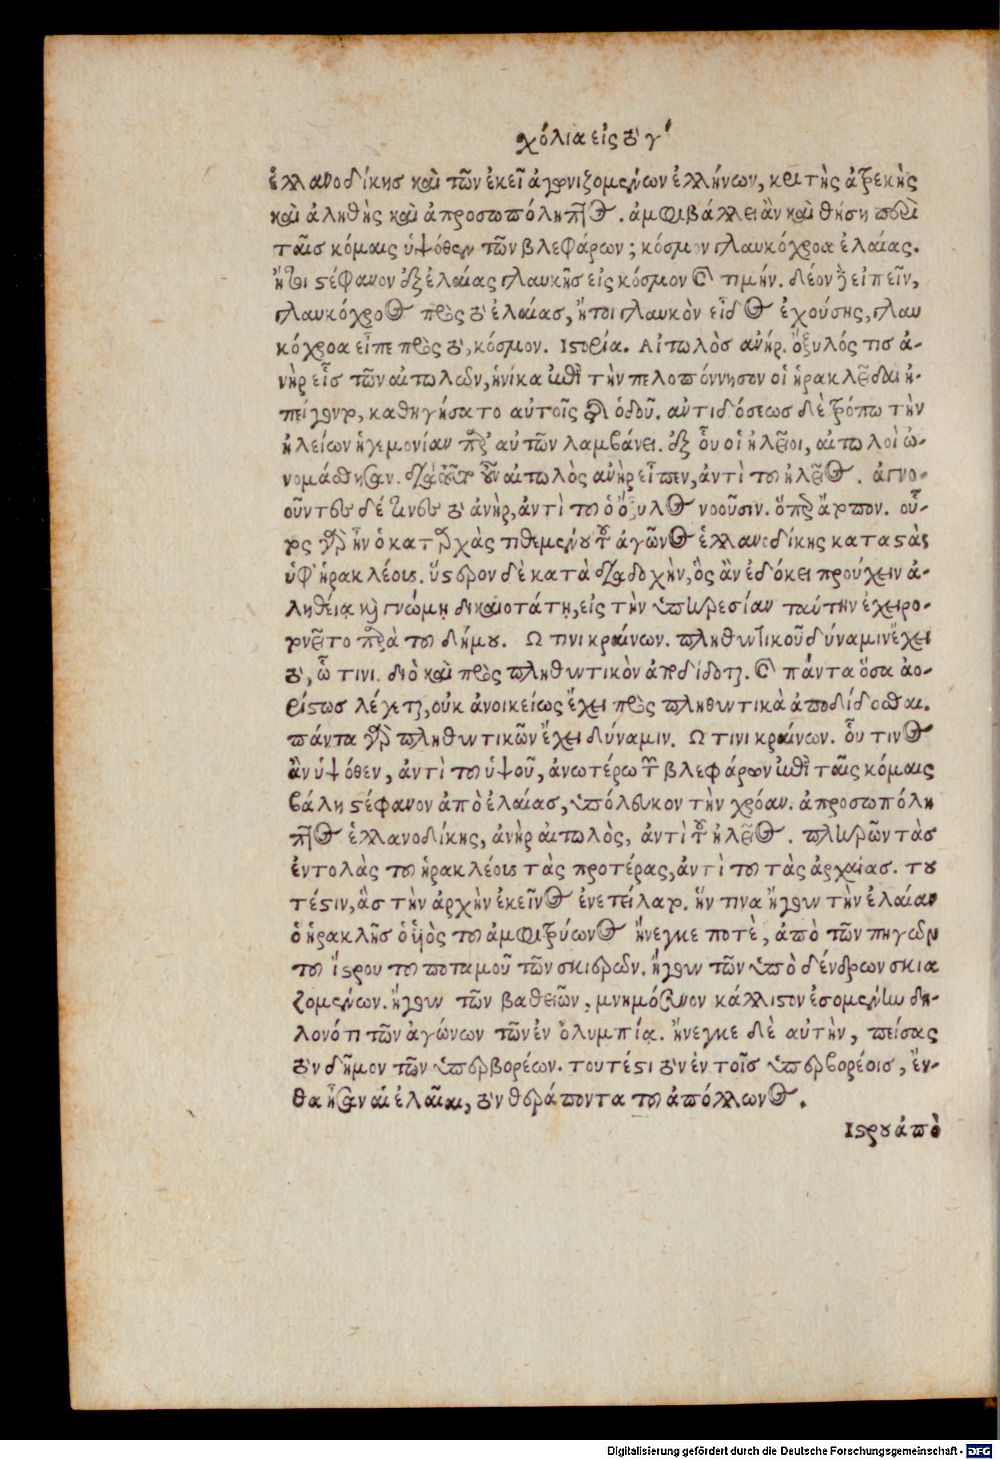 χόλια εἰς τὸ γ′
ἑλλανοδίκης καὶ τῶν ἐκεῖ ἀγωνιζομένων ἑλλήνων, κριτὴς ἀτρεκὴς
καὶ ἀληθὴς καὶ ἀπροσωπόληπτος. ἀμφιβάλλει ἂν καὶ θήσῃ περὶ
ταῖς κόμαις ὑψόθεν τῶν βλεφάρων; κόσμον γλαυκόχροα ἐλαίας.
ἤτοι στέφανον ἐξ ἐλαίας γλαυκῆς εἰς κόσμον καὶ τιμήν. δέον δὲ εἰπεῖν,
γλαυκόχροος πρὸς τὸ ἐλαίας, ἤτοι γλαυκὸν εἶδος ἐχούσης, γλαυ
κόχροα εἶπε πρὸς τὸ, κόσμον. Ιστορία. Αἰτωλὸς ἀνήρ. ὄξυλός τις ἀ-
νὴρ εἷς τῶν αἰτωλῶν, ἡνίκα μετὰ τὴν πελοπόννησον οἱ ἡρακλεῖδαι ἠ-
πείγοντο, καθηγήσατο αὐτοῖς τῆς ὁδοῦ. ἀντιδόσεως δὲ τρόπω τὴν
ἠλείων ἡγεμονίαν παρ' αὐτῶν λαμβάνει. ἐξ οὗ οἱ ἠλεῖοι, αἰτωλοὶ ὠ-
νομάσθησαν. διὰ τοῦτο οὖν αἰτωλὸς ἀνὴρ εἶπεν, ἀντὶ τοῦ ἠλεῖος. ἀγνο-
οῦντες δέ τινες τὸ ἀνὴρ, ἀντὶ τοῦ ὁ ὄξυλος νοοῦσιν. ὅπερ ἄτοπον. οὗ-
τος γὰρ ἦν ὁ κατ' ἀρχὰς τιθεμένου τοῦ ἀγῶνος ἑλλανοδίκης καταστὰς
ὑφ' ἡρακλέους. ὕστερον δὲ κατὰ διαδοχὴν, ὃς ἂν ἐδόκει προύχειν ἀ-
ληθείᾳ καὶ γνώμῃ δικαιοτάτῃ, εἰς τὴν ὑπηρεσίαν ταύτην ἐχειρο-
τονεῖτο παρὰ τοῦ δήμου. Ω τινι κραίνων. πληθυντικοῦ δύναμιν ἔχει
τὸ, ᾧ τινι. διὸ καὶ πρὸς πληθυντικὸν ἀποδίδοται. καὶ πάντα ὅσα ἀο-
ρίστως λέγεται, οὐκ ἀνοικείως ἔχει πρὸς πληθυντικὰ ἀποδίδοσθαι.
πάντα γὰρ πληθυντικῶν ἔχει δύναμιν. Ω τινι κραίνων. οὗ τινος
ἂν ὑψόθεν, ἀντὶ τοῦ ὑψοῦ, ἀνωτέρω τῶν βλεφάρων μετὰ ταῖς κόμαις
βάλῃ στέφανον ἀπὸ ἐλαίας, ὑπόλευκον τὴν χρόαν. ἀπροσωπόλη
πτος ἑλλανοδίκης, ἀνὴρ αἰτωλὸς, ἀντὶ τοῦ ἠλεῖος. πληρῶν τὰς
ἐντολὰς τοῦ ἡρακλέους τὰς προτέρας, ἀντὶ τοῦ τὰς ἀρχαίας. του
τέστιν, ἃς τὴν ἀρχὴν ἐκεῖνος ἐνετείλατο. ἥν τινα ἤγουν τὴν ἐλαίαν
ὁ ἡρακλῆς ὁ υἱὸς τοῦ ἀμφιτρύωνος ἤνεγκε ποτὲ, ἀπὸ τῶν πηγῶν
τοῦ ἴστρου τοῦ ποταμοῦ τῶν σκιερῶν. ἤγουν τῶν ὑπὸ δένδρων σκια
ζομένων. ἤγουν τῶν βαθειῶν, μνημόσυνον κάλλιστον ἐσομένην δη-
λονότι τῶν ἀγώνων τῶν ἐν ὀλυμπίᾳ. ἤνεγκε δὲ αὐτὴν, πείσας
τὸν δῆμον τῶν ὑπερβορέων. τουτέστι τὸν ἐν τοῖς ὑπερβορέοις, ἔν-
θα ἦσαν αἱ ἐλαῖαι, τὸν θεράποντα τοῦ ἀπόλλωνος.
Ιστρου ἀπὸ
Digitalisierung gefördert durch die Deutsche Forschungsgemeinschaft - DFG